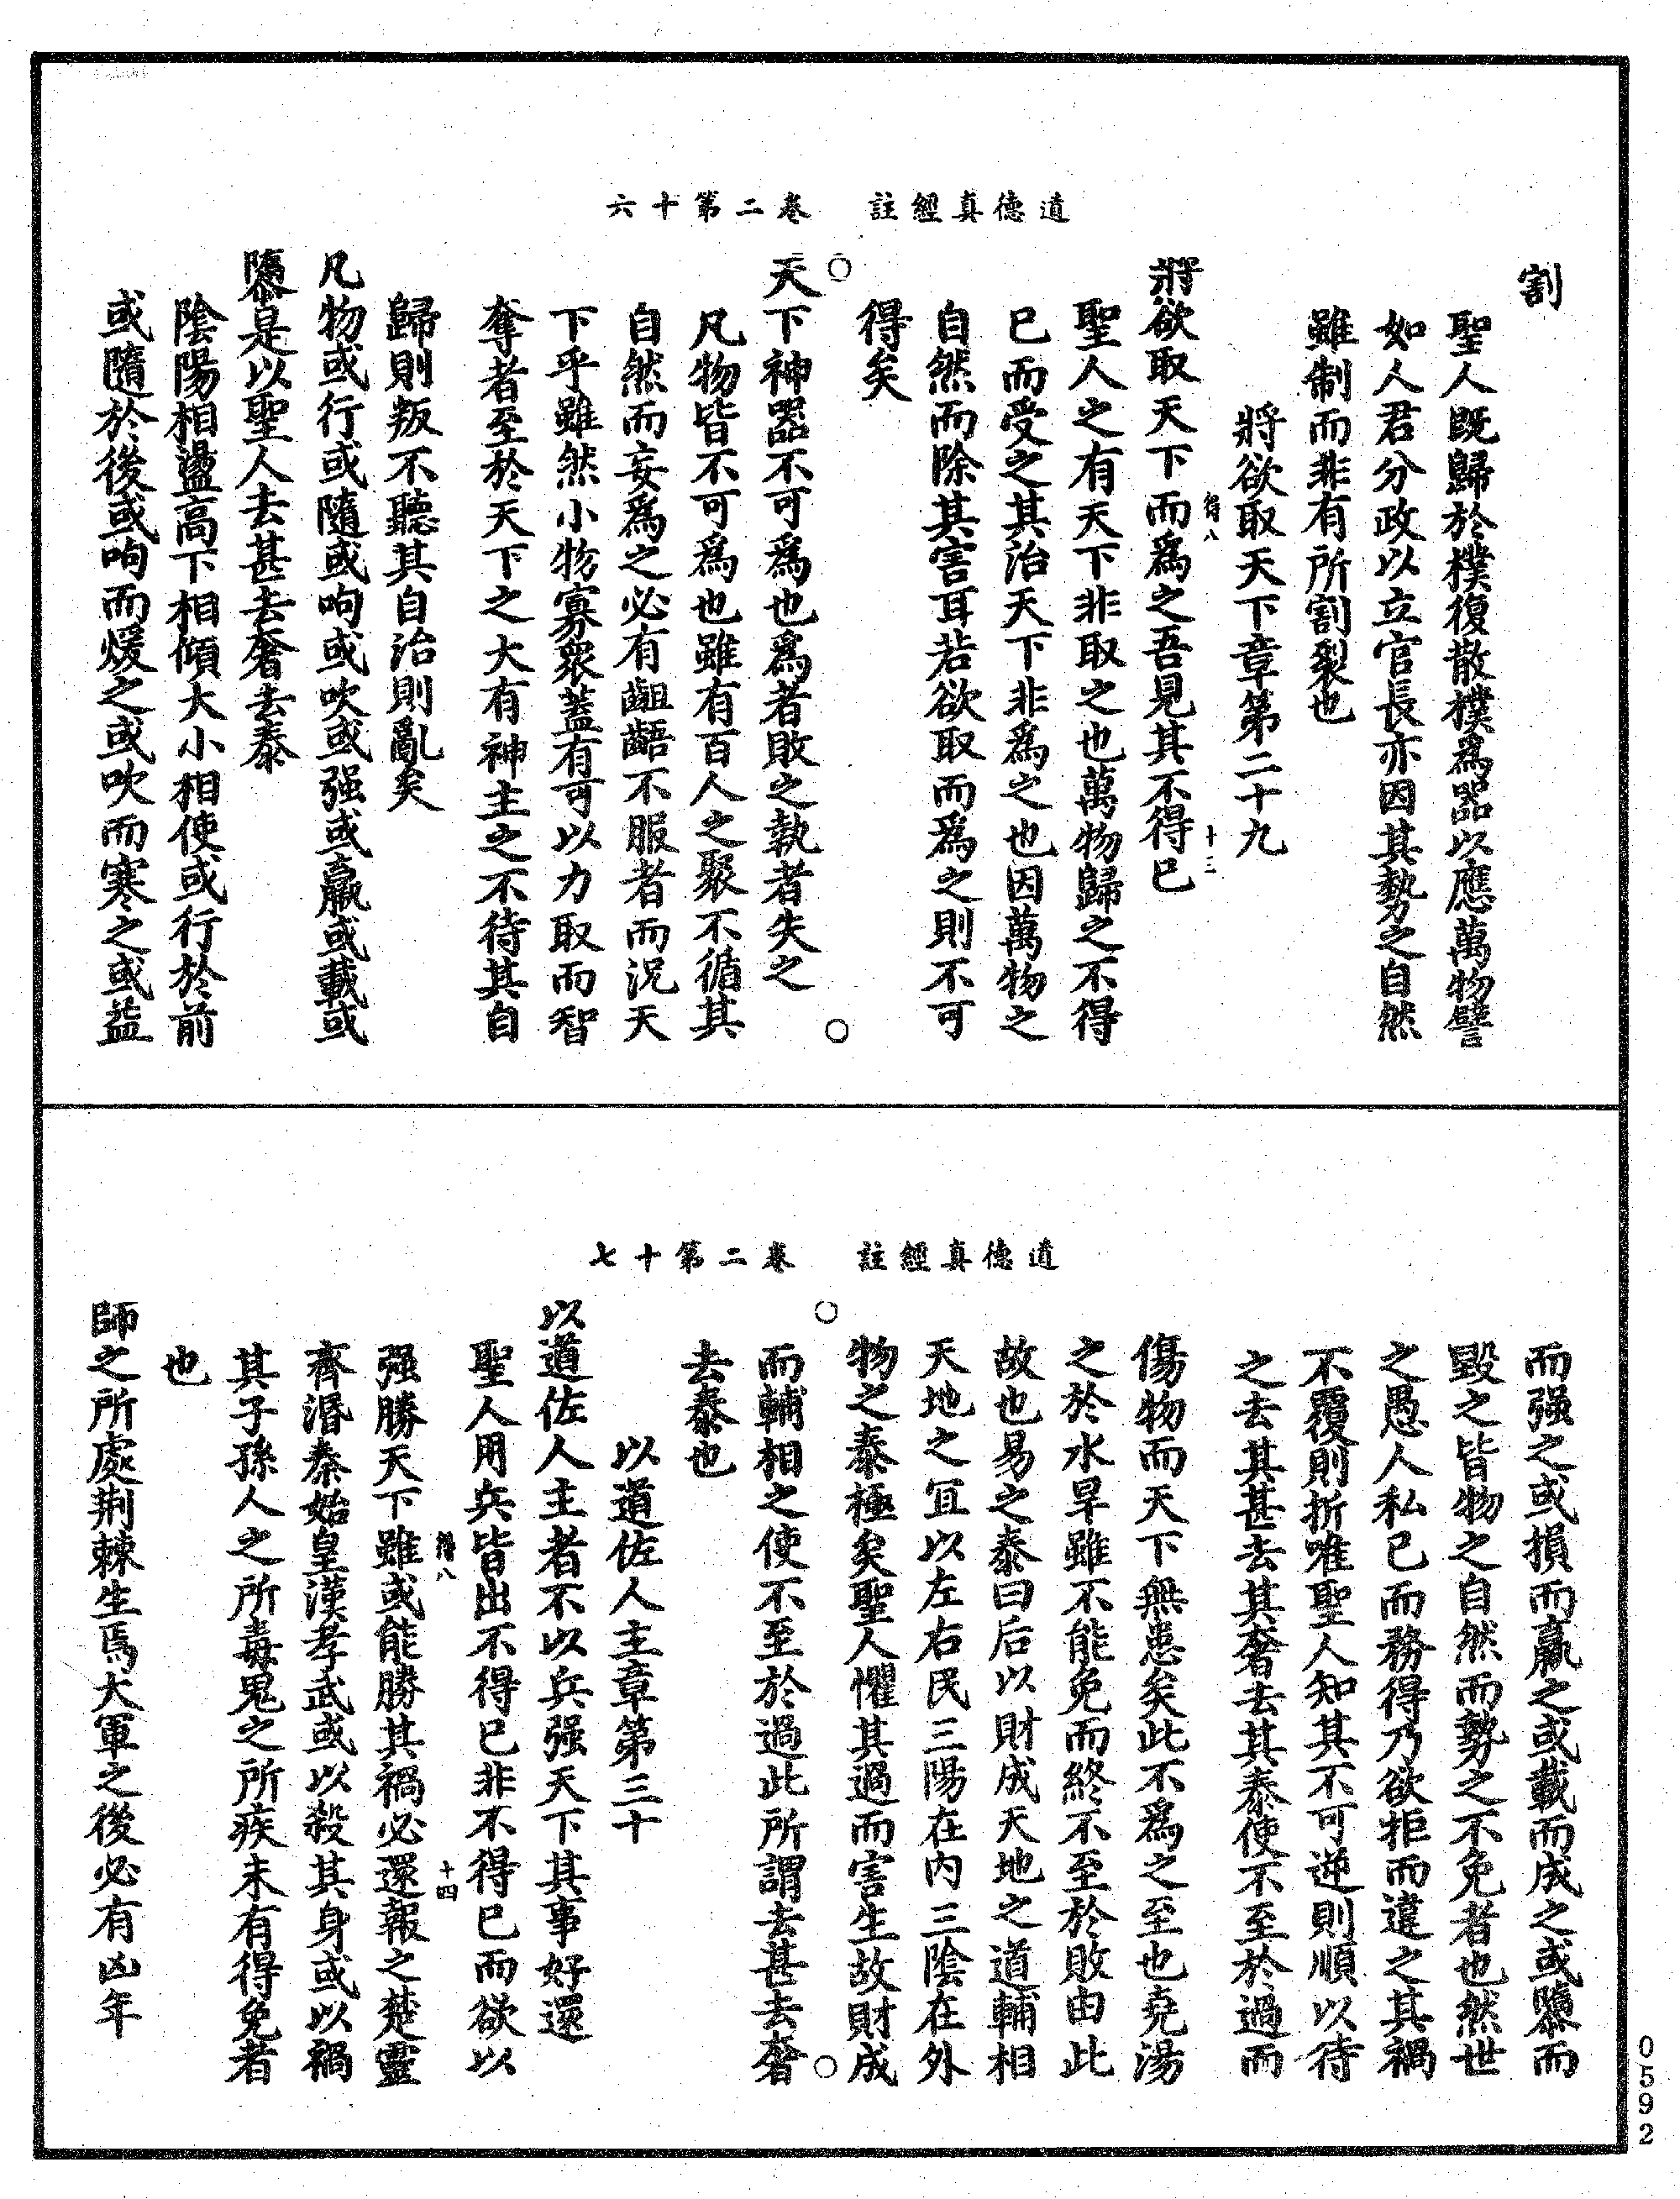 道德真經註　卷二第十六
割
聖人既歸於樸復散樸爲器以應萬物譬
如人君分政以立官長亦因其勢之自然
雖制而非有所割裂也
將欲取天下章第二十九
得八　十三
將欲取天下而爲之吾見其不得已
聖人之有天下非取之也萬物歸之不得
已而受之其治天下非爲之也因萬物之
自然而除其害耳若欲取而爲之則不可
得矣
天下神器不可爲也爲者敗之執者失之
凡物皆不可爲也雖有百人之聚不循其
自然而妄爲之必有齟齬不服者而況天
下乎雖然小物寡衆蓋有可以力取而智
奪者至於天下之大有神主之不待其自
歸則叛不聽其自治則亂矣
凡物或行或隨或呴或吹或强或羸或載或
隳是以聖人去甚去奢去泰
陰陽相盪高下相傾大小相使或行於前
或隨於後或呴而煖之或吹而寒之或益
道德真經註　卷二第十七
而强之或損而羸之或載而成之或隳而
毀之皆物之自然而勢之不免者也然世
之愚人私己而務得乃欲拒而違之其禍
不覆則折唯聖人知其不可逆則順以待
之去其甚去其奢去其泰使不至於過而
傷物而天下無患矣此不爲之至也堯湯
之於水旱雖不能免而終不至於敗由此
故也易之泰曰后以財成天地之道輔相
天地之冝以左右民三陽在内三陰在外
物之泰極矣聖人懼其過而害生故財成
而輔相之使不至於過此所謂去甚去奢
去泰也
以道佐人主章第三十
以道佐人主者不以兵强天下其事好還
聖人用兵皆出不得已非不得已而欲以
得八　十四
强勝天下雖或能勝其禍必還報之楚靈
齊湣秦始皇漢孝武或以殺其身或以禍
其子孫人之所毒鬼之所疾未有得免者
也
師之所處荆棘生焉大軍之後必有凶年
0592